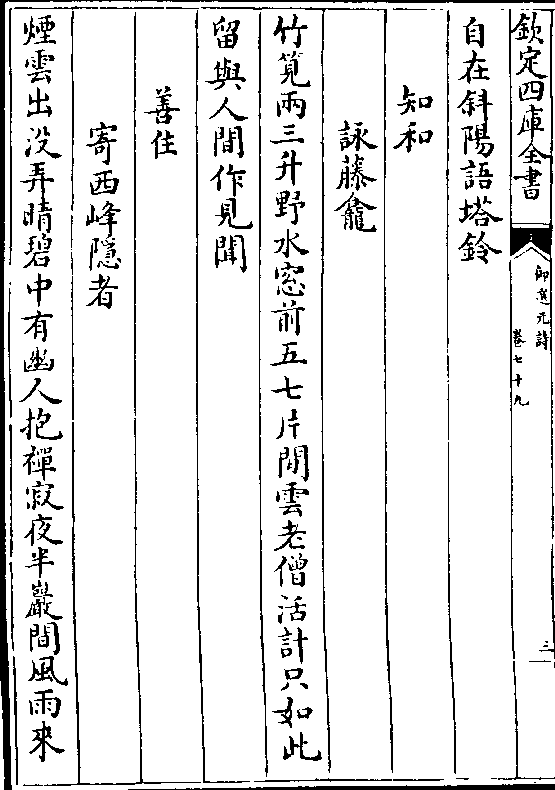 欽定四庫全書
御選元詩
卷七十九
三
自在斜陽語塔鈴
知和
詠藤龕
竹筧兩三升野水窓前五七片閒雲老僧活計只如此
留與人間作見聞
善住
寄西峰隱者
煙雲出没弄晴碧中有幽人抱禪寂夜半巖間風雨來